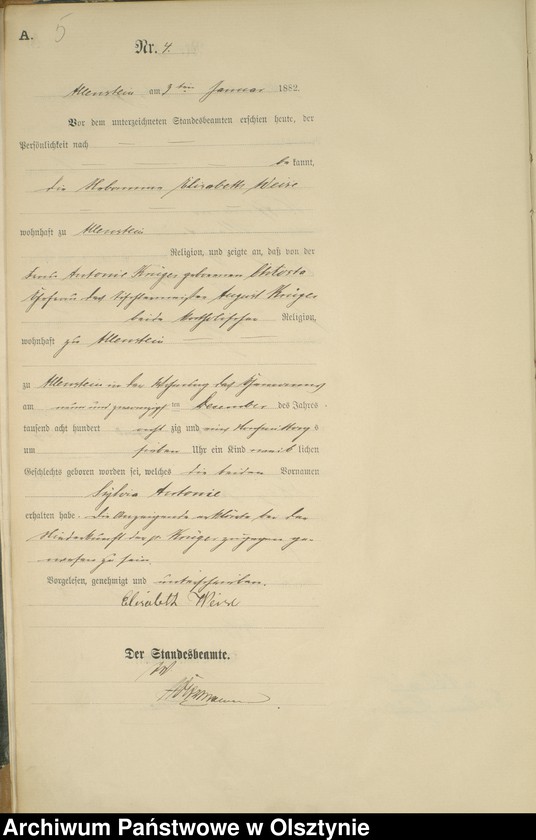 A. 5
Nr. 4.
Allenstein am 3ten Januar 1882.
Vor dem unterzeichneten Standesbeamten erschien heute, der
Persönlichkeit nach
bekannt,
die Hebamme Elisabeth Weise
wohnhaft zu Allenstein
Religion, und zeigte an, daß von der
Frau Antonie Krüger geborenen
Ehefrau des August Krüger
beide katholischer Religion,
wohnhaft zu Allenstein
zu Allenstein in der Wohnung des Ehemannes
am neun und zwanzigsten Dezember des Jahres
tausend acht hundert acht zig und eins Nachmittags
um sieben Uhr ein Kind weiblichen
Geschlechts geboren worden sei, welches die beiden Vornamen
Sylvia Antonie
erhalten habe. Die Anzeigende erklärte bei der
Niederkunft der pr. Krüger zugegen ge-
wesen zu sein
Vorgelesen, genehmigt und unterschrieben.
Elisabeth Weise
Der Standesbeamte.
Archiwum Państwowe w Olsztynie